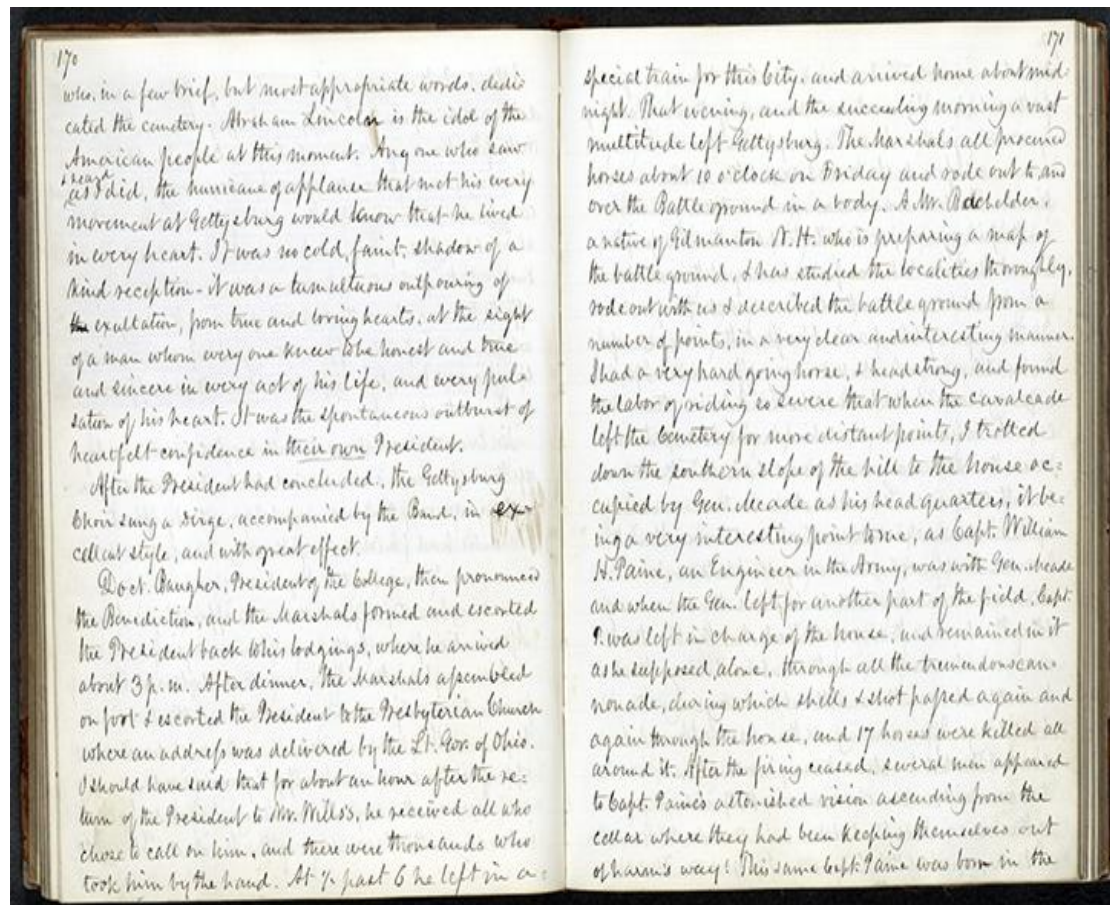 170
who, in a few brief, but most appropriate words, dedi-
cated the cemetery. Abraham Lincoln is the idol of the
American people at this moment. Any one who saw
& heard
as I did, the hurricane of applause that met his every
movement at Gettysburg would know that he lived
in every heart. It was no cold, faint, shadow of a
kind reception - it was a tumultuous outpouring of
the exultation, from true and loving hearts, at the sight
of a man whom every one knew to be honest and true
and sincere in every act of his life, and every pul-
sation of his heart. It was the spontaneous outburst of
heartfelt confidence in their own President.
After the President had concluded, the Gettysburg
Choir sung a dirge, accompanied by the Band, in ex-
cellent style, and with great effect.
Doct. Baugher, President of the College, then pronounced
the Benediction, and the Marshals formed and escorted
the President back to his lodgings, where he arrived
about 3 p.m. After dinner, the Marshals assembled
on foot & escorted the President to the Presbyterian Church
where an address was delivered by the Lt. Gov. of Ohio.
I should have said that for about an hour after the re=
turn of the President to Mr. Wills's, he received all who
chose to call on him, and there were thousands who
took him by the hand. At ½ past 6 he left in a
171
special train for this City, and arrived home about mid-
night. That evening, and the succeeding morning a vast
multitude left Gettysburg. The Marshals all procured
horses about 10 o'clock on Friday and rode out to and
over the Battle ground in a body. A Mr. Bachelder,
a native of Gilmanton N.H. who is preparing a map of
the battle ground, & has studied the localities thoroughly,
rode out with us & described the battle ground from a
number of points, in a very clear and interesting manner.
I had a very hard going horse, & headstrong, and found
the labor of riding so severe that when the cavalcade
left the Cemetery for more distant points, I trotted
down the southern slope of the hill to the house oc=
cupied by Gen. Meade as his head quarters, it be=
ing a very interesting point to me, as Capt. William
H. Paine, an Engineer in the Army, was with Gen. Meade
and when the Gen. left for another part of the field, Capt.
P. was left in charge of the house, and remained in it
as he supposed, alone, through all the tremendous can-
nonade, during which shells & shot passed again and
again through the house, and 17 horses were killed all
around it. After the firing ceased, several men appeared
to Capt. Paine's astonished vision ascending from the
cellar where they had been keeping themselves out
of harm's way! This same Capt. Paine was born in the